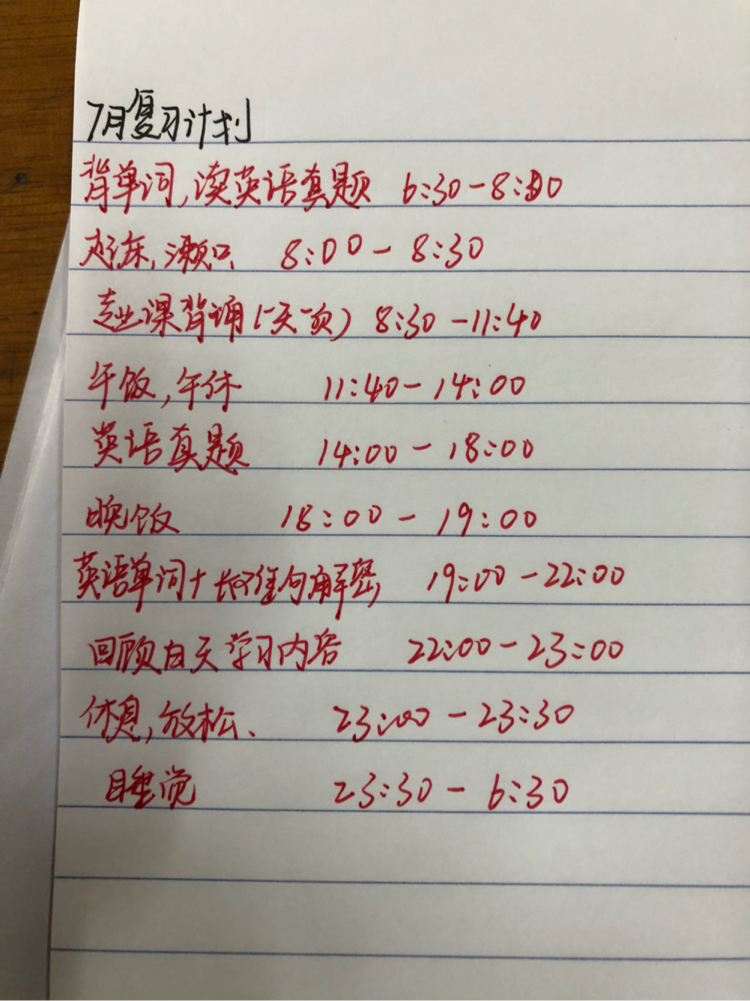 7月复习计划
背单词,读英语真题 6:30-8:00
起床,漱口 8:00-8:30
专业课背诵(一天一页) 8:30-11:40
午饭,午休 11:40-14:00
英语真题 14:00-18:00
晚饭 18:00-19:00
英语单词+长难句解密 19:00-22:00
回顾白天学习内容 22:00-23:00
休息,放松、 23:00-23:30
睡觉 23:30-6:30